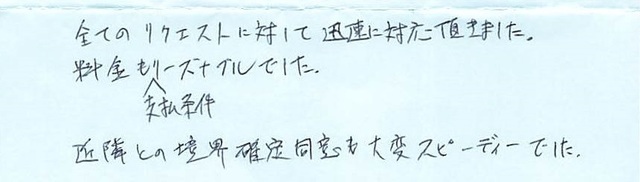 全てのリクエストに対して迅速に対応頂きました。
料金もリーズナブルでした。
支払条件
近隣との境界確定同意も大変スピーディーでした。